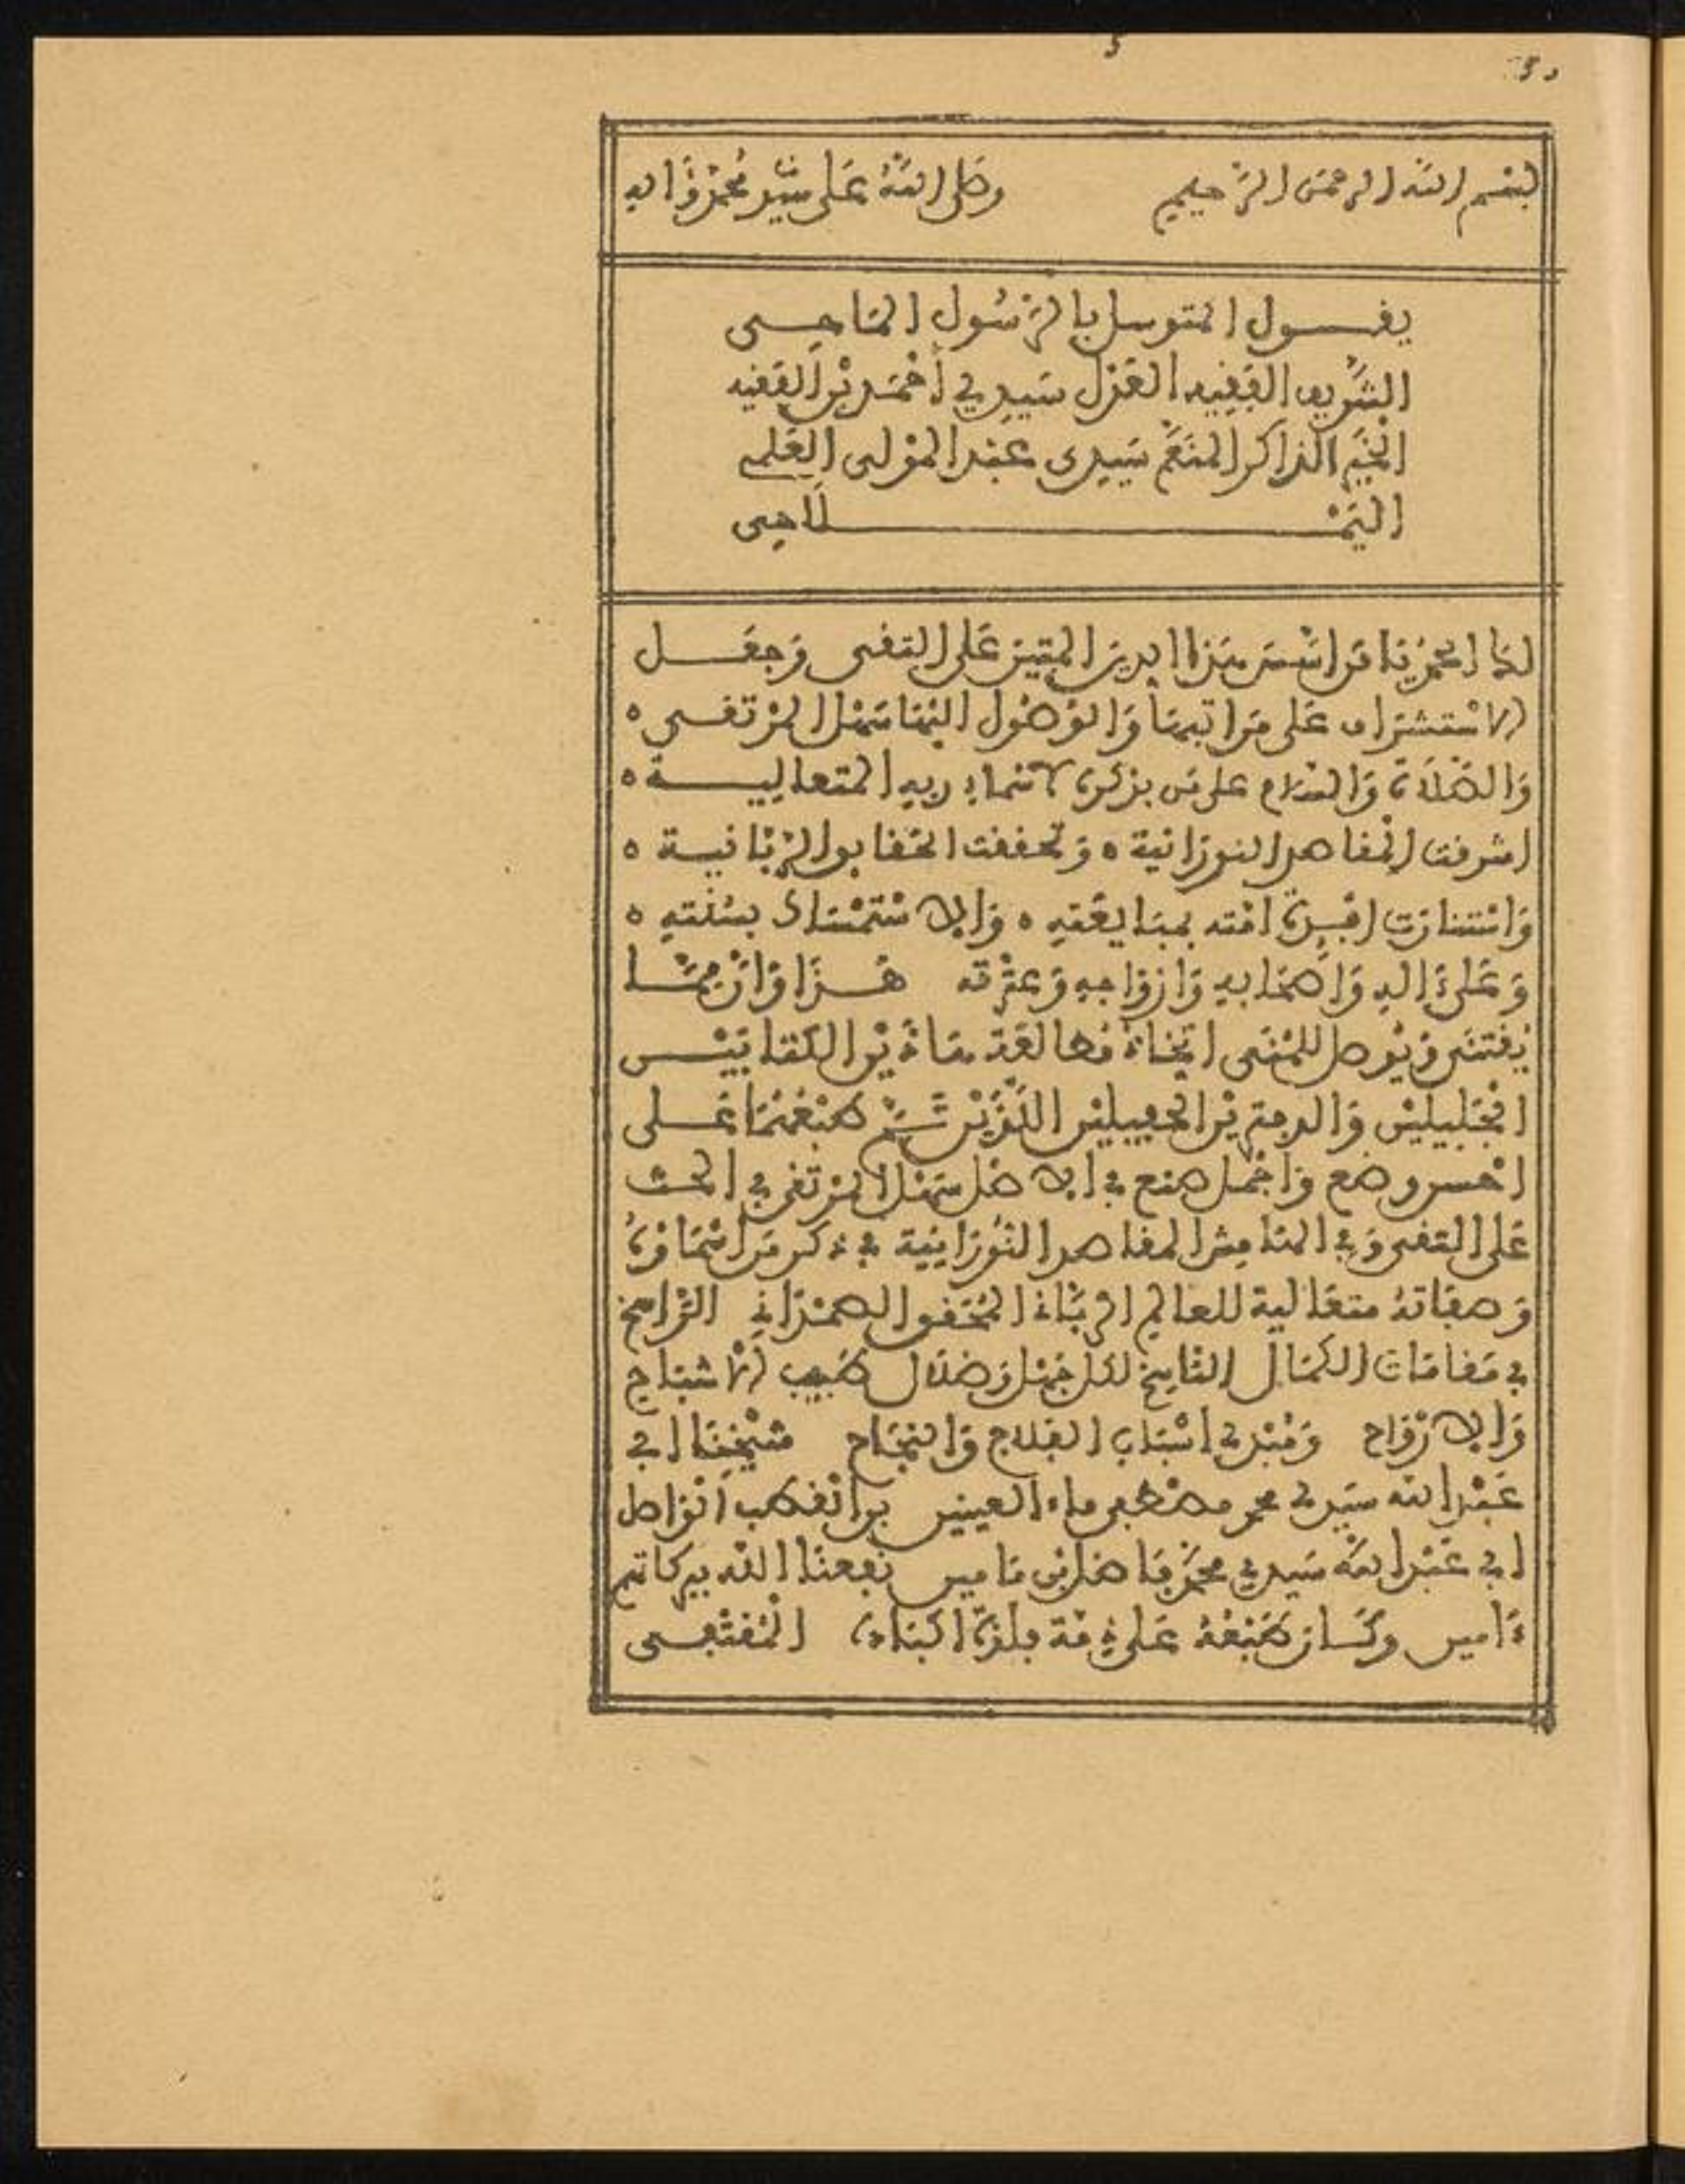 بسم الله الرحمن الرحيم وصلى الله على سيد محمد وءاله
يقول المتوسل بالرسول الماحي
الشريف الفقيه العدل سيدي أحمد بن الفقيه
الخير الذاكر المنعم سيدي عبد المولى العلمي
اليملاحي
لك الحمد يا من اسس هذا الدين المتين على التقى وجعل
الاستشراف على مراتبها والوصول اليها سهل المرتقى ه
والصلاة والسلام على من بذكره لاسماء ربه المتعالية ه
اشرقت المظاهر النورانية ه وتحققت الحقايق الربانية ه
واستنارت افئدة امته بمتابعته ه والاستمساك بسنته ه
وعلى ءاله واصحابه وازواجه وعترته هذا وان مما
يقتنى ويوصل للمنى اتخاذ مطالعة هاذين الكتابين
الجليلين والدمترين الحفيلين اللذين تم طبعهما على
احسن وضع واجمل صنع في الاصل سهل المرتقى في الحث
على التقى وفي الهامش المظاهر النورانية في ذكر من اسماؤه
وصفاته متعالية للعالم الرباني المحقق الصمداني الراسخ
في مقامات الكمال الناسخ لكل جهل وضلال طبيب الاشباح
والارواح ومبدي اسباب الفلاح والنجاح شيخنا ابي
عبد الله سيدي محمد مصطفى ماء العينين بن القطب الواصل
ابي عبد الله سيدي محمد فاضل بن مامين نفعنا الله ببركاتهم
ءامين وكان طبعه على ذمة ملازم اكباده المقتفي